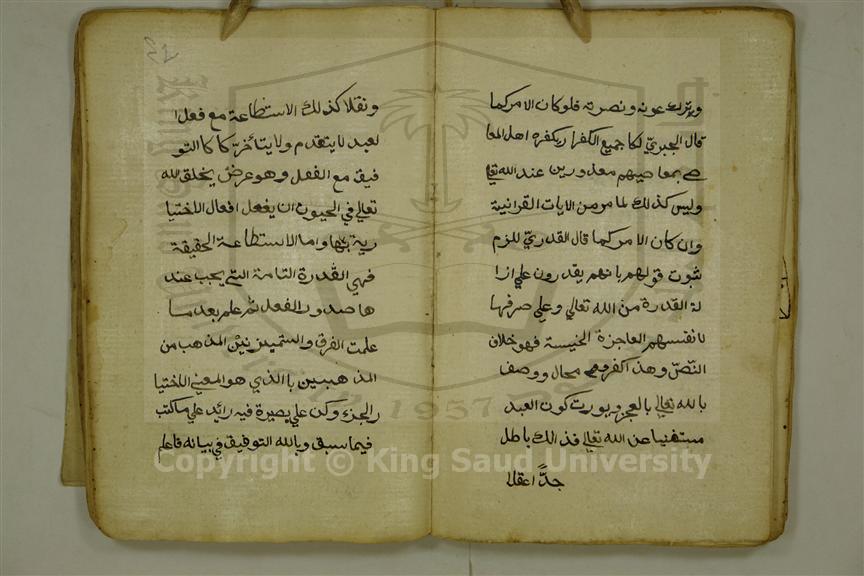 ويترك عونه ونصرته فلو كان الامر كما
قال الجبري لكا جميع الكفرا ريكفره اهل المعا
صي بمعاصيهم معذورين عند الله تعا
وليس كذلك لما مر من الايات القرانية
وان كان الامر كما قال القدري للزم
ثبوت قولهم بانهم يقدرون علي ازا
لة القدرة من الله تعالي وعلي صرفها
لانفسهم العاجزة الخبيسة فهو خلاف
النصّ وهذا كفر محال ووصف
بالله تعالي بالعجز كون العبد
مستغنيا عن الله تعالي فذالك باطل
جدًّا عقلا
ونقلا كذلك الاستطاعة مع فعل ا
لعبد لا يتقدم ولا يتأخر كا كالتو
فيق مع الفعل وهو عرض يخلق الله
تعالي في الحيوان ان يفعل افعال اللختيا
رية بها واما الاستطاعة الحقيقة
فهي القدرة التامة التي يجب عند
ها صدور الفعل ثم علم بعد ما
علمت الفرق والتمييز بين المذهب من
المذهبين باالذي هو المعني اللختيا
ر الجزء وكن علي بصيرة فيه رائد علي ما كتب
فيما سبق وبالله التوفيق في بيانه فاعلم
Copyright © King Saud University
1957